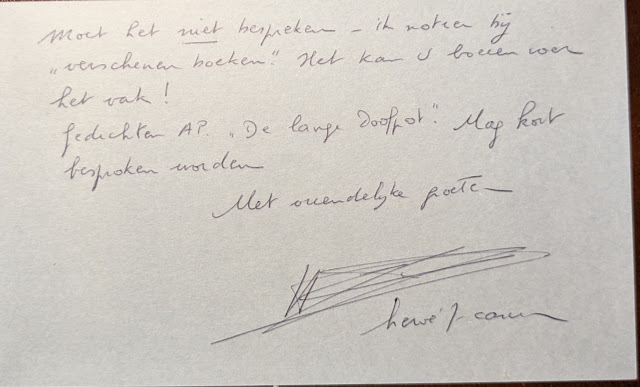 Moet het niet bespreken – ik noteer bij
„verschenen boeken". Het kan U boeien voor
het vak!
Gedichten AP. „De lange Doofpot". Mag kort
besproken worden
Met vriendelijke groeten
hervé j.